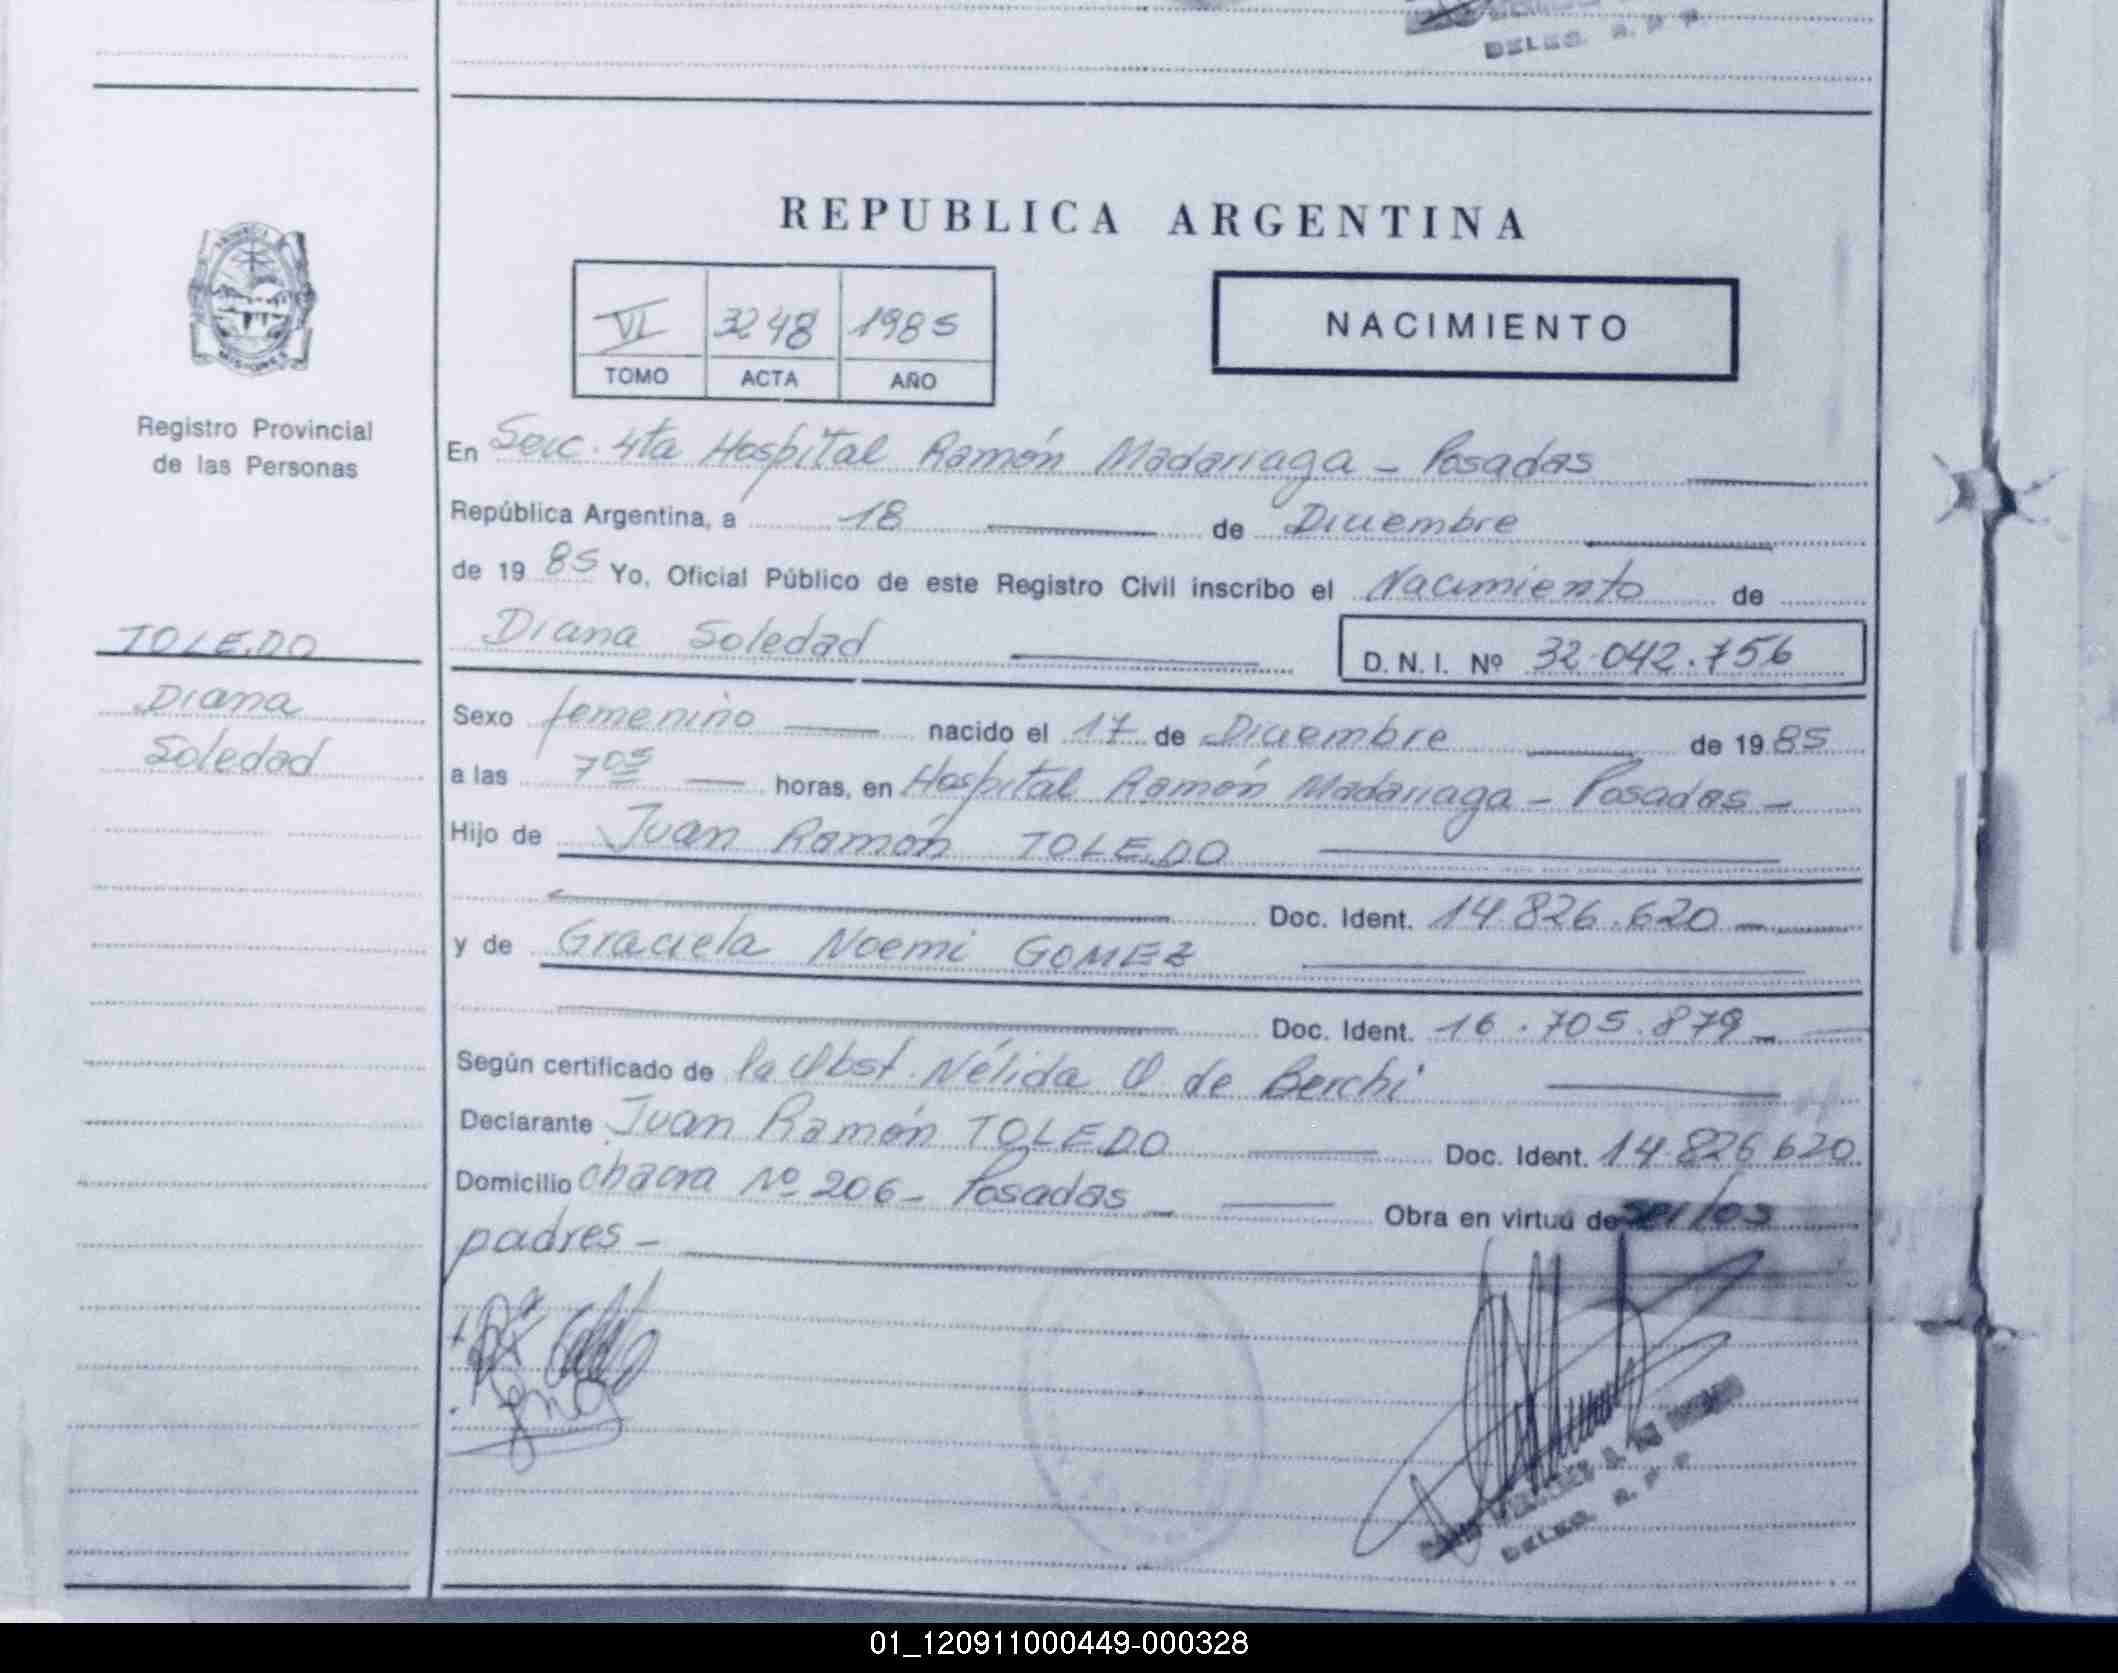 DELEG. R. P. P.
REPUBLICA ARGENTINA
VI 3248 1985
TOMO ACTA AÑO
NACIMIENTO
Registro Provincial
de las Personas
TOLEDO
Diana
Soledad
En Secc. 4ta Hospital Ramón Madariaga - Posadas
República Argentina, a 18 de Diciembre
de 19 85 Yo, Oficial Público de este Registro Civil inscribo el Nacimiento de
Diana Soledad D. N. I. Nº 32.042.756
Sexo femenino nacido el 17 de Diciembre de 19 85
a las 7 05 horas, en Hospital Ramón Madariaga - Posadas -
Hijo de Juan Ramón TOLEDO
Doc. Ident. 14.826.620
y de Graciela Noemi GOMEZ
Doc. Ident. 16.705.879
Según certificado de la Obst. Nélida O. de Berchi
Declarante Juan Ramón TOLEDO Doc. Ident. 14.826.620
Domicilio chacra Nº 206 - Posadas - Obra en virtud de ser los
padres -
DELEG. R. P. P.
01_120911000449-000328